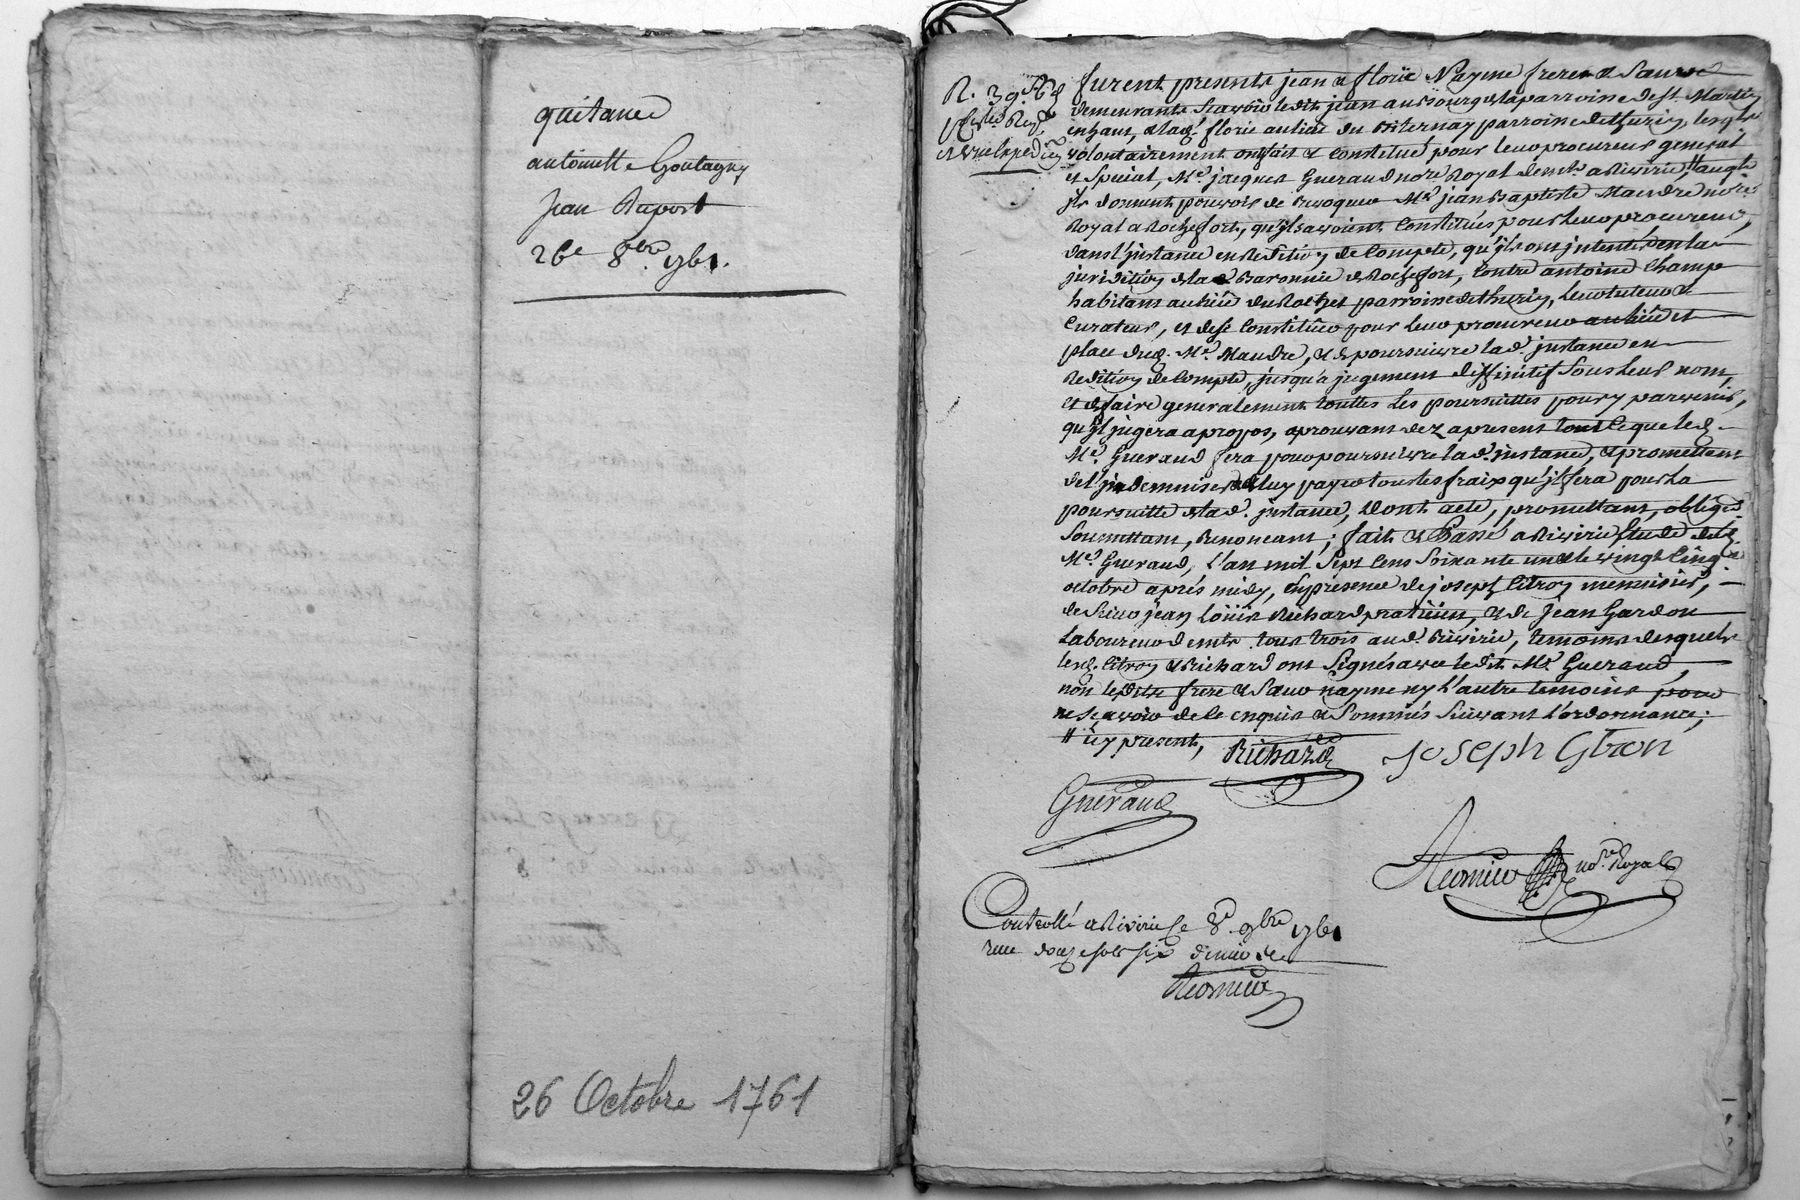 quitance
antoinette Goutagny
Jean Rapost
26e 8bre 1761.
26 Octobre 1761
R. 39 s 6 d
furent presents jean & florie Nayme freres & Sœurs
demeurants scavoir ledit jean au Bourg & la parroisse de st. Martin
en haut, & lad. florie au lieu du parroisse de thurin, lesqls
volontairement ont fait & Constitué pour leur procureur general
et special, Me. jacques Gueraud nore Royal demt. a Riverie // auql
ils donnent pouvoir de revoquer Me jean Baptiste Maudre nore
Royal a Rochefort, qu'ils avoient Constitués pour leur procureur,
dans l'instance en reddition de Compte, qu'ils ont intentés en la
juridition de la d Baronnie de Rochefort, Contre antoine Champe
habitant au lieu du Rochet parroisse de thurin, leur tuteur &
Curateur, et de se Constituer pour leur procureur au lieu et
place dud. Me. Maudre, & de poursuivre la d. instance en
Reddition de Compte, jusqu'a jugement deffinitif Sous leur nom,
et de faire generalement touttes les poursuittes pour y parvenir,
qu'il jugera apropos, aprouvant dez apresent tout ce que led.
Me. Gueraud fera pour poursuivre la d. instance, & promettent
de l'indemniser & luy payer tous les fraix qu'il fera pour la
poursuitte de la d. instance, Dont acte, promettant, obligent
Soumettant, renoncant; fait & Passé a Riverie Etude dud.
Me. Gueraud, l'an mil Sept Cens Soixante un & le vingt Cinq
octobre aprés midy, En presence de joseph Citron menuisier,
de Sieur jean Loüis Richard praticien, & de jean Gardon
Laboureur demts. tous trois aud. Riverie, temoins desquels
lesd. Citron & Richard ont Signés avec ledit Me. Gueraud,
non lesdits frere & Sœur nayme ny l'autre temoins pour
ne Scavoir de ce enquis & Sommés Suivant l'ordonnance;
// icy present,
Richard
joseph Citron
Gueraud
nore. Royal
Controllé a Riverie le 8e. 9bre 1761
Reçu douze sols six deniers